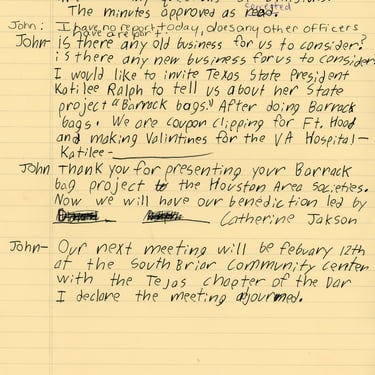 The minutes approved as read.
corrected
John: I have no report today, does any other officers
have a report
John- is there any old business for us to consider?
is there any new business for us to consider
I would like to invite Texas State President
Katilee Ralph to tell us about her State
project "Barrack bags." After doing Barrack
bags. We are coupon clipping for Ft. Hood
and making Valintines for the VA Hospital-
Katilee-
John Thank you for presenting your Barrack
bag project to the Houstan Area societies.
Now we will have our benediction led by
Catherine Jakson
John- Our next meeting will be febuary 12th
at the South Briar Community center
with the Tejas chapter of the Dar
I declare the meeting ajourned.